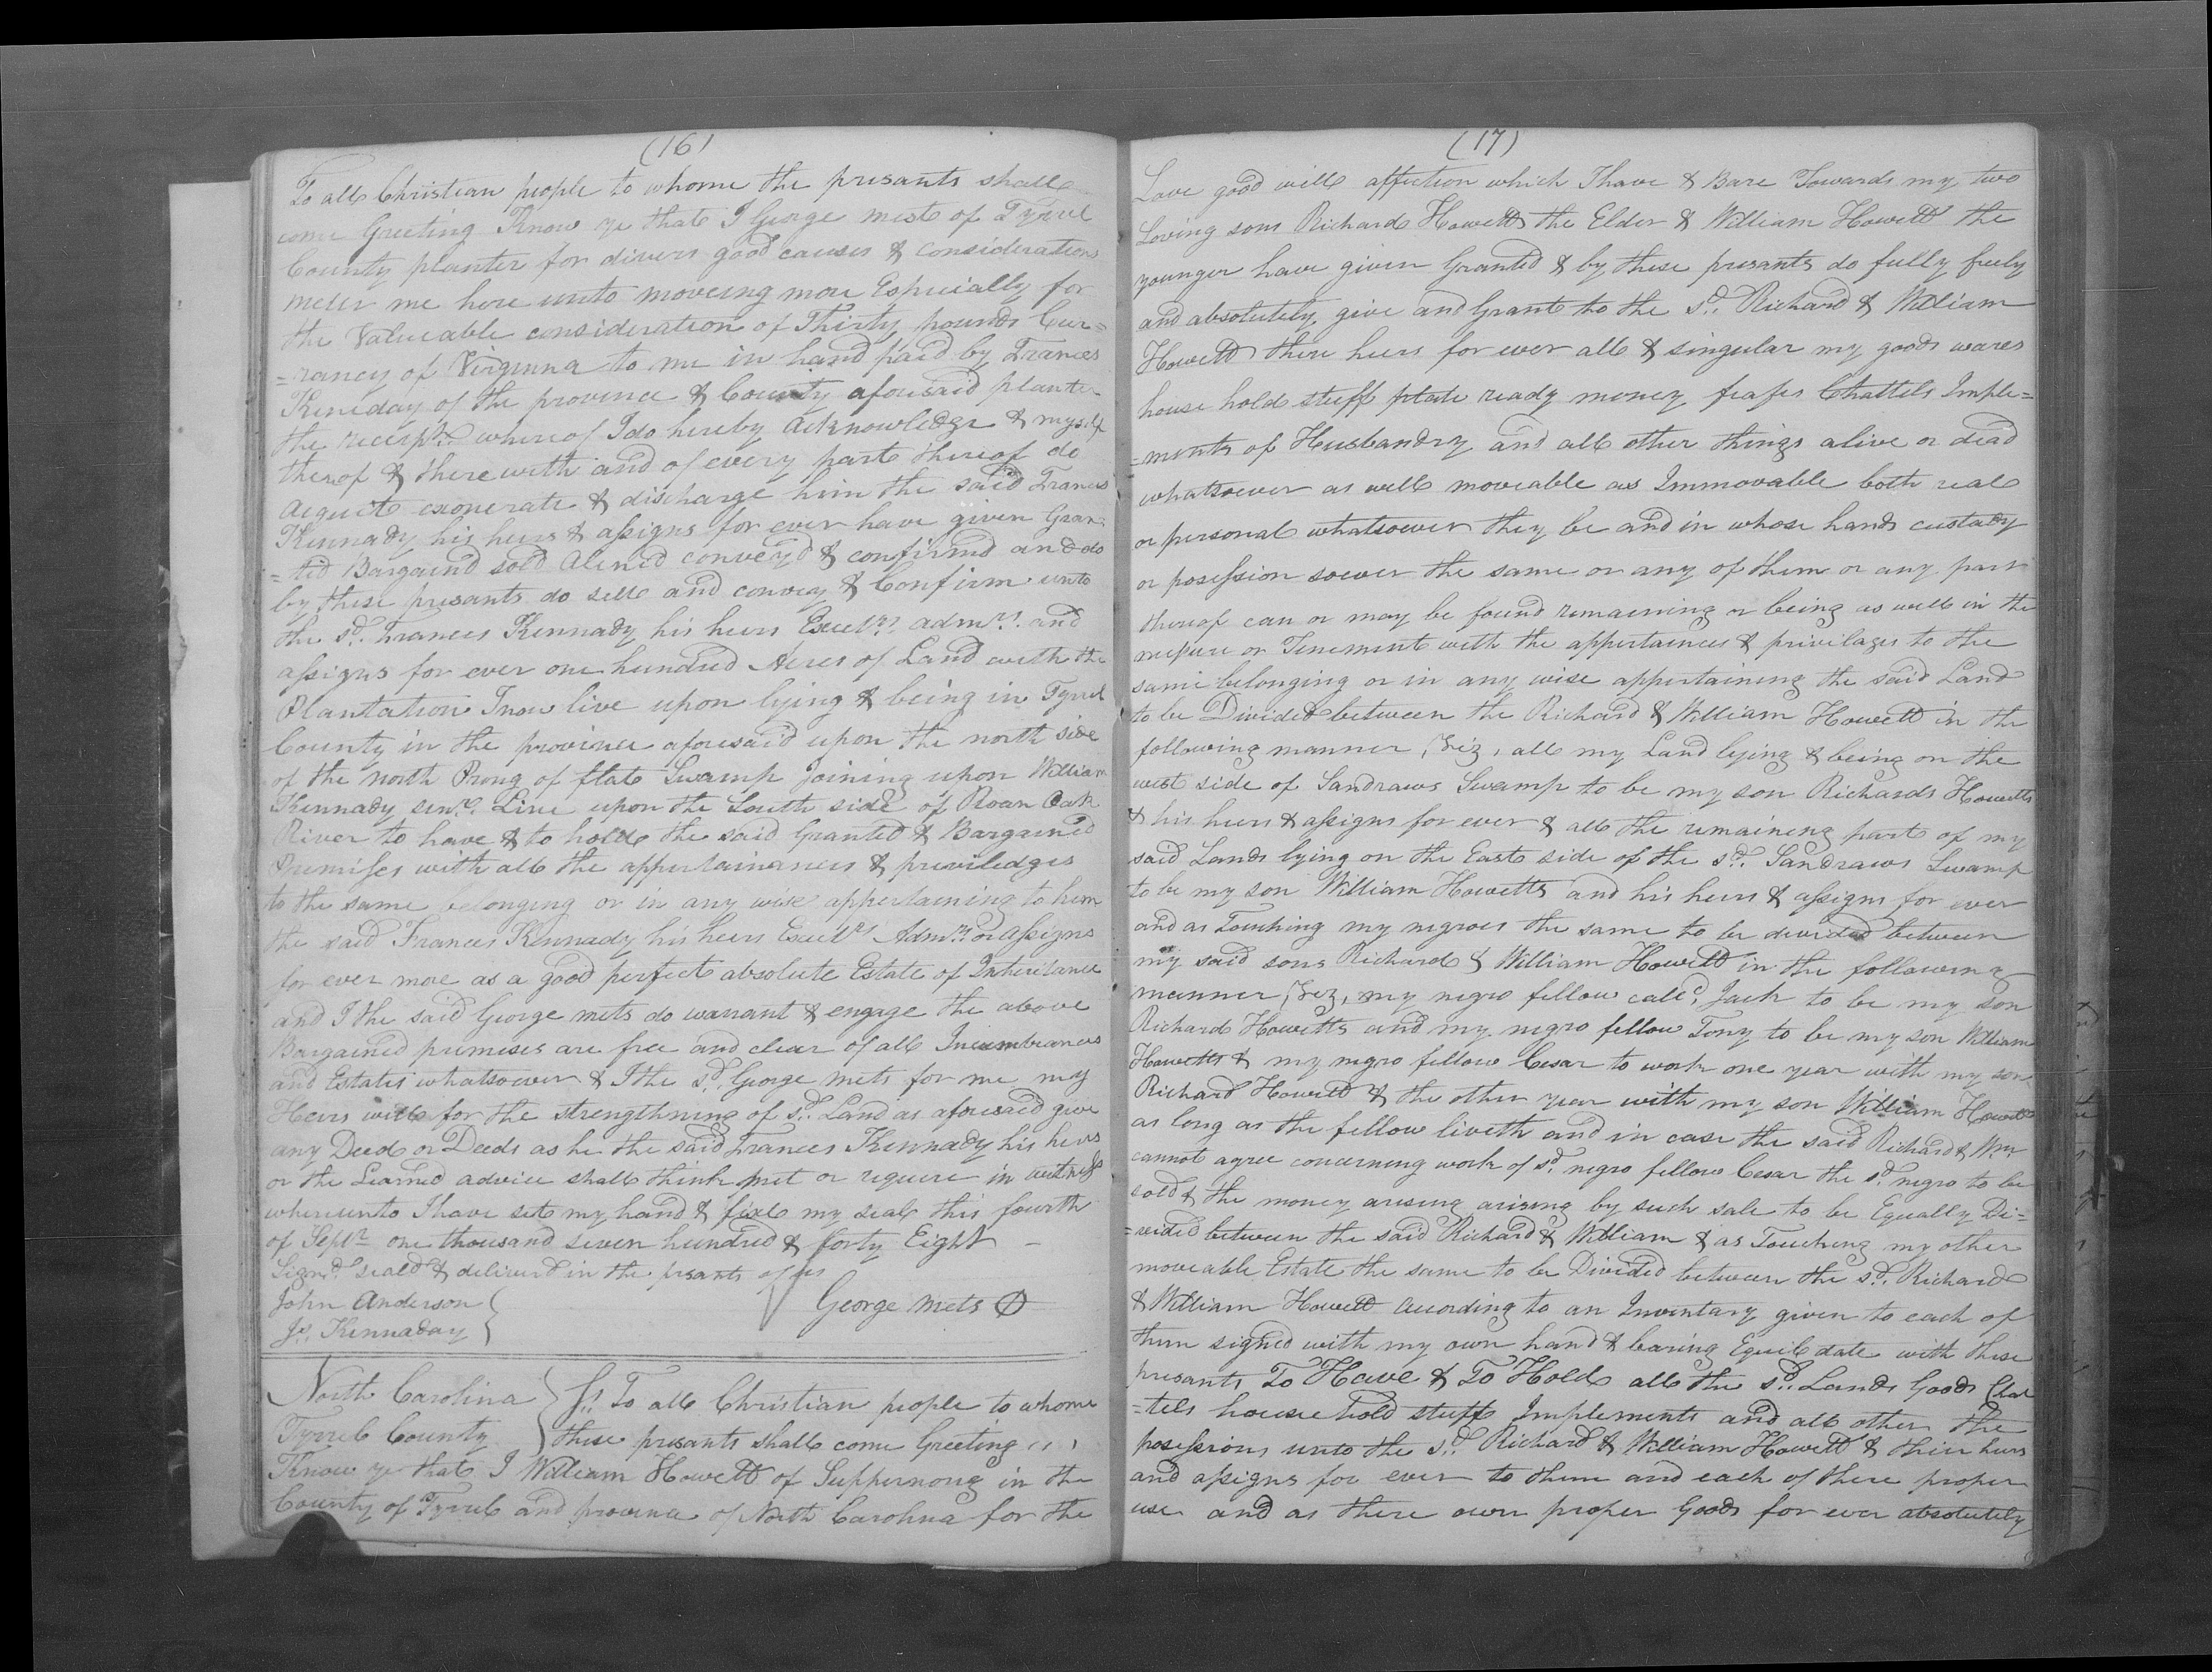 (16)
To all Christian people to whome the presants shall
come Greeting Know ye that I George mets of Tyrrel
County planter for divers good causes & considerations
me here unto moveing more Especially for
the Valueable consideration of Thirty pounds Cur=
=rancy of Virginna to me in hand paid by Frances
Keneday of the province & County aforesaid planter
the receipt whereof I do hereby acknowledge & myself
thereof & there with and of every part thereof do
acquit exonerate & discharge him the said Frances
Kennady his heirs & assigns for ever have given Gran=
=tid Bargaind sold Alined convey'd & confirmd and do
by these presants do sell and convey & Confirm unto
the sd. Frances Kennady his heirs Execrs. admrs. and
assigns for ever one hundred Acres of Land with the
Plantation I now live upon lying & being in Tyrrel
County in the province aforesaid upon the north side
of the north Prong of flat Swamp Joining upon William
Kennady senr. Line upon the South side of Roan Oak
River to have & to hold the said Granted & Bargained
Premises with all the appertainances & priviledges
to the same belonging or in any wise appertaining to him
the said Frances Kennady his heirs Execrs Admrs. or assigns
for ever more as a good perfect absolute Estate of Inheritance
and I the said George mets do warrant & engage the above
Bargained premises are free and clear of all Incumbrances
and Estates whatsoever & I the sd. George mets for me my
Heirs will for the strengthning of sd. Land as aforesaid give
any Deed or Deeds as he the said Frances Kennady his heirs
or the Learned advice shall think met or require in witness
whereunto I have set my hand & fixe my seal this fourth
of Septr one thousand seven hundred & forty Eight
Signd seald & deliverd in the prsants of us
John Anderson
Js. Kennaday
George mets
North Carolina
Tyrrel County
Ss. To all Christian people to whome
these presants shall come Greeting
Know ye that I William Howett of Suppernong in the
County of Tyrrel and province of North Carolina for the
(17)
Love good will affection which I have & Bare Towards my two
Loving sons Richard Howett the Elder & William Howett the
younger have given Granted & by these presants do fully freely
and absolutely give and Grant to the sd. Richard & William
Howett there heirs for ever all & singular my goods wares
house hold stuff plate ready money Chattels Imple=
=ments of Husbandry and all other things alive or dead
whatsoever as well moveable as Immovable both real
or personal whatsoever they be and in whose hands custady
or posession soever the same or any of them or any part
thereof can or may be found remaining or being as well in the
or Teniment with the appertainces & privilages to the
same belonging or in any wise appertaining the said Land
to be Divided between the Richard & William Howett in the
following manner, Viz, all my Land lying & being on the
west side of Sandraws Swamp to be my son Richards Howetts
& his heirs & assigns for ever & all the remaining part of my
said Lands lying on the East side of the sd. Sandraws Swamp
to be my son William Howetts and his heirs & assigns for ever
and as Touching my negroes the same to be devided between
my said sons Richard & William Howett in the following
manner, Viz, my negro fellow caled, Jack to be my son
Richard Howetts and my negro fellow Tony to be my son William
Howetts & my negro fellow Cesar to work one year with my son
Richard Howett & the other year with my son William Howett
as long as the fellow liveth and in case the said Richard & Wm.
cannot agree concerning work of sd. negro fellow Cesar the sd. negro to be
sold & the money areseing ariseing by such sale to be Equally Di=
=veided between the said Richard & William & as Touching my other
moveable Estate the same to be Divided between the sd. Richard
& William Howett according to an Inventary given to each of
them signed with my own hand & bearing Equil date with these
presants To Have & To Hold all the sd. Lands Goods Chat
=tels house hold stuff Implements and all other the
posessions unto the sd. Richard & William Howett & their heirs
and assigns for ever to them and each of there proper
use and as there own proper Goods for ever absolutely